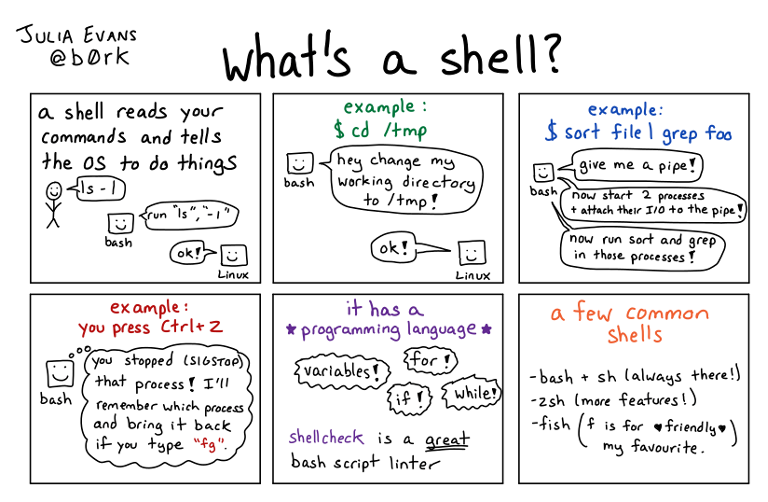 JULIA EVANS
@b0rk
what's a shell?
a shell reads your
commands and tells
the OS to do things
ls -l
run "ls", "-l"
bash
ok!
Linux
example:
$ cd /tmp
hey change my
working directory
to /tmp!
bash
ok!
Linux
example:
$ sort file | grep foo
give me a pipe!
bash
now start 2 processes
+ attach their I/O to the pipe!
now run sort and grep
in those processes!
example:
you press Ctrl+Z
you stopped (SIGSTOP)
that process! I'll
remember which process
and bring it back
if you type "fg".
bash
it has a
★ programming language ★
variables!
for!
if!
while!
shellcheck is a great
bash script linter
a few common
shells
-bash + sh (always there!)
-zsh (more features!)
-fish (f is for ♥friendly♥
my favourite.)